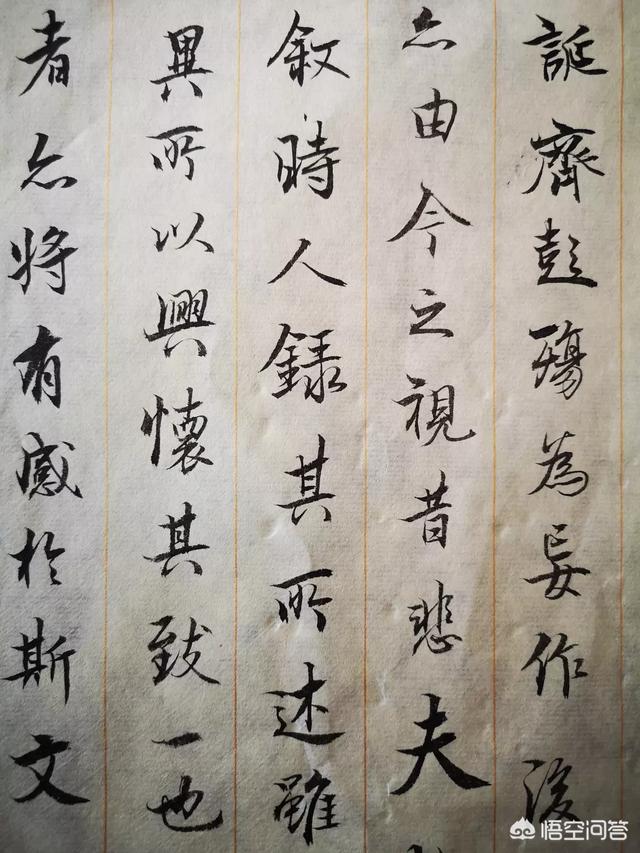 誕齊彭殤為妄作後
亦由今之視昔悲夫
敘時人錄其所述雖
異所以興懷其致一也
者亦將有感於斯文
悟空问答